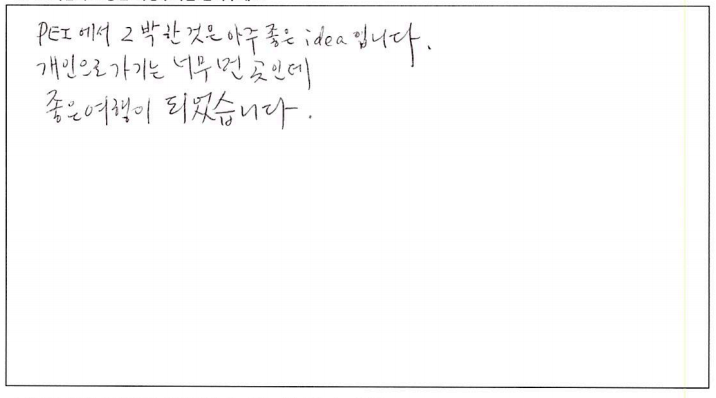 PEI에서 2박한것은 아주 좋은 idea입니다.
개인으로 가기는 너무 먼 곳인데
좋은 여행이 되었습니다.